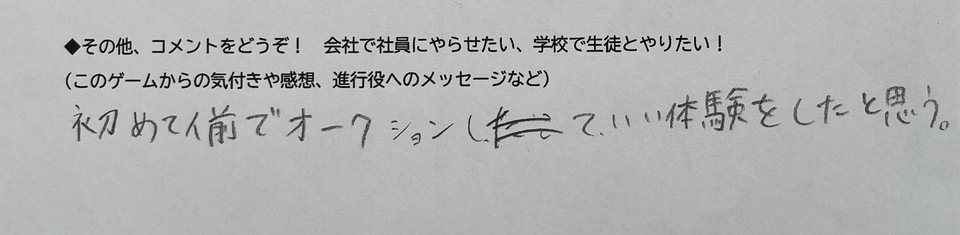 ◆その他、コメントをどうぞ！　会社で社員にやらせたい、学校で生徒とやりたい！
（このゲームからの気付きや感想、進行役へのメッセージなど）
初めて人前でオークションして、いい体験をしたと思う。